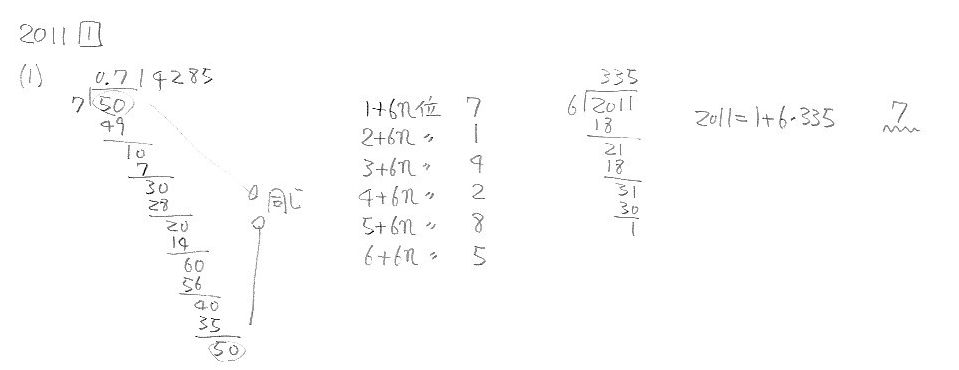 2011 1
(1)
0.714285
7)50
49
10
7
30
28
20
14
60
56
40
35
50
同じ
1+6n位 7
2+6n〃 1
3+6n〃 4
4+6n〃 2
5+6n〃 8
6+6n〃 5
335
6)2011
18
21
18
31
30
1
2011=1+6・335 7